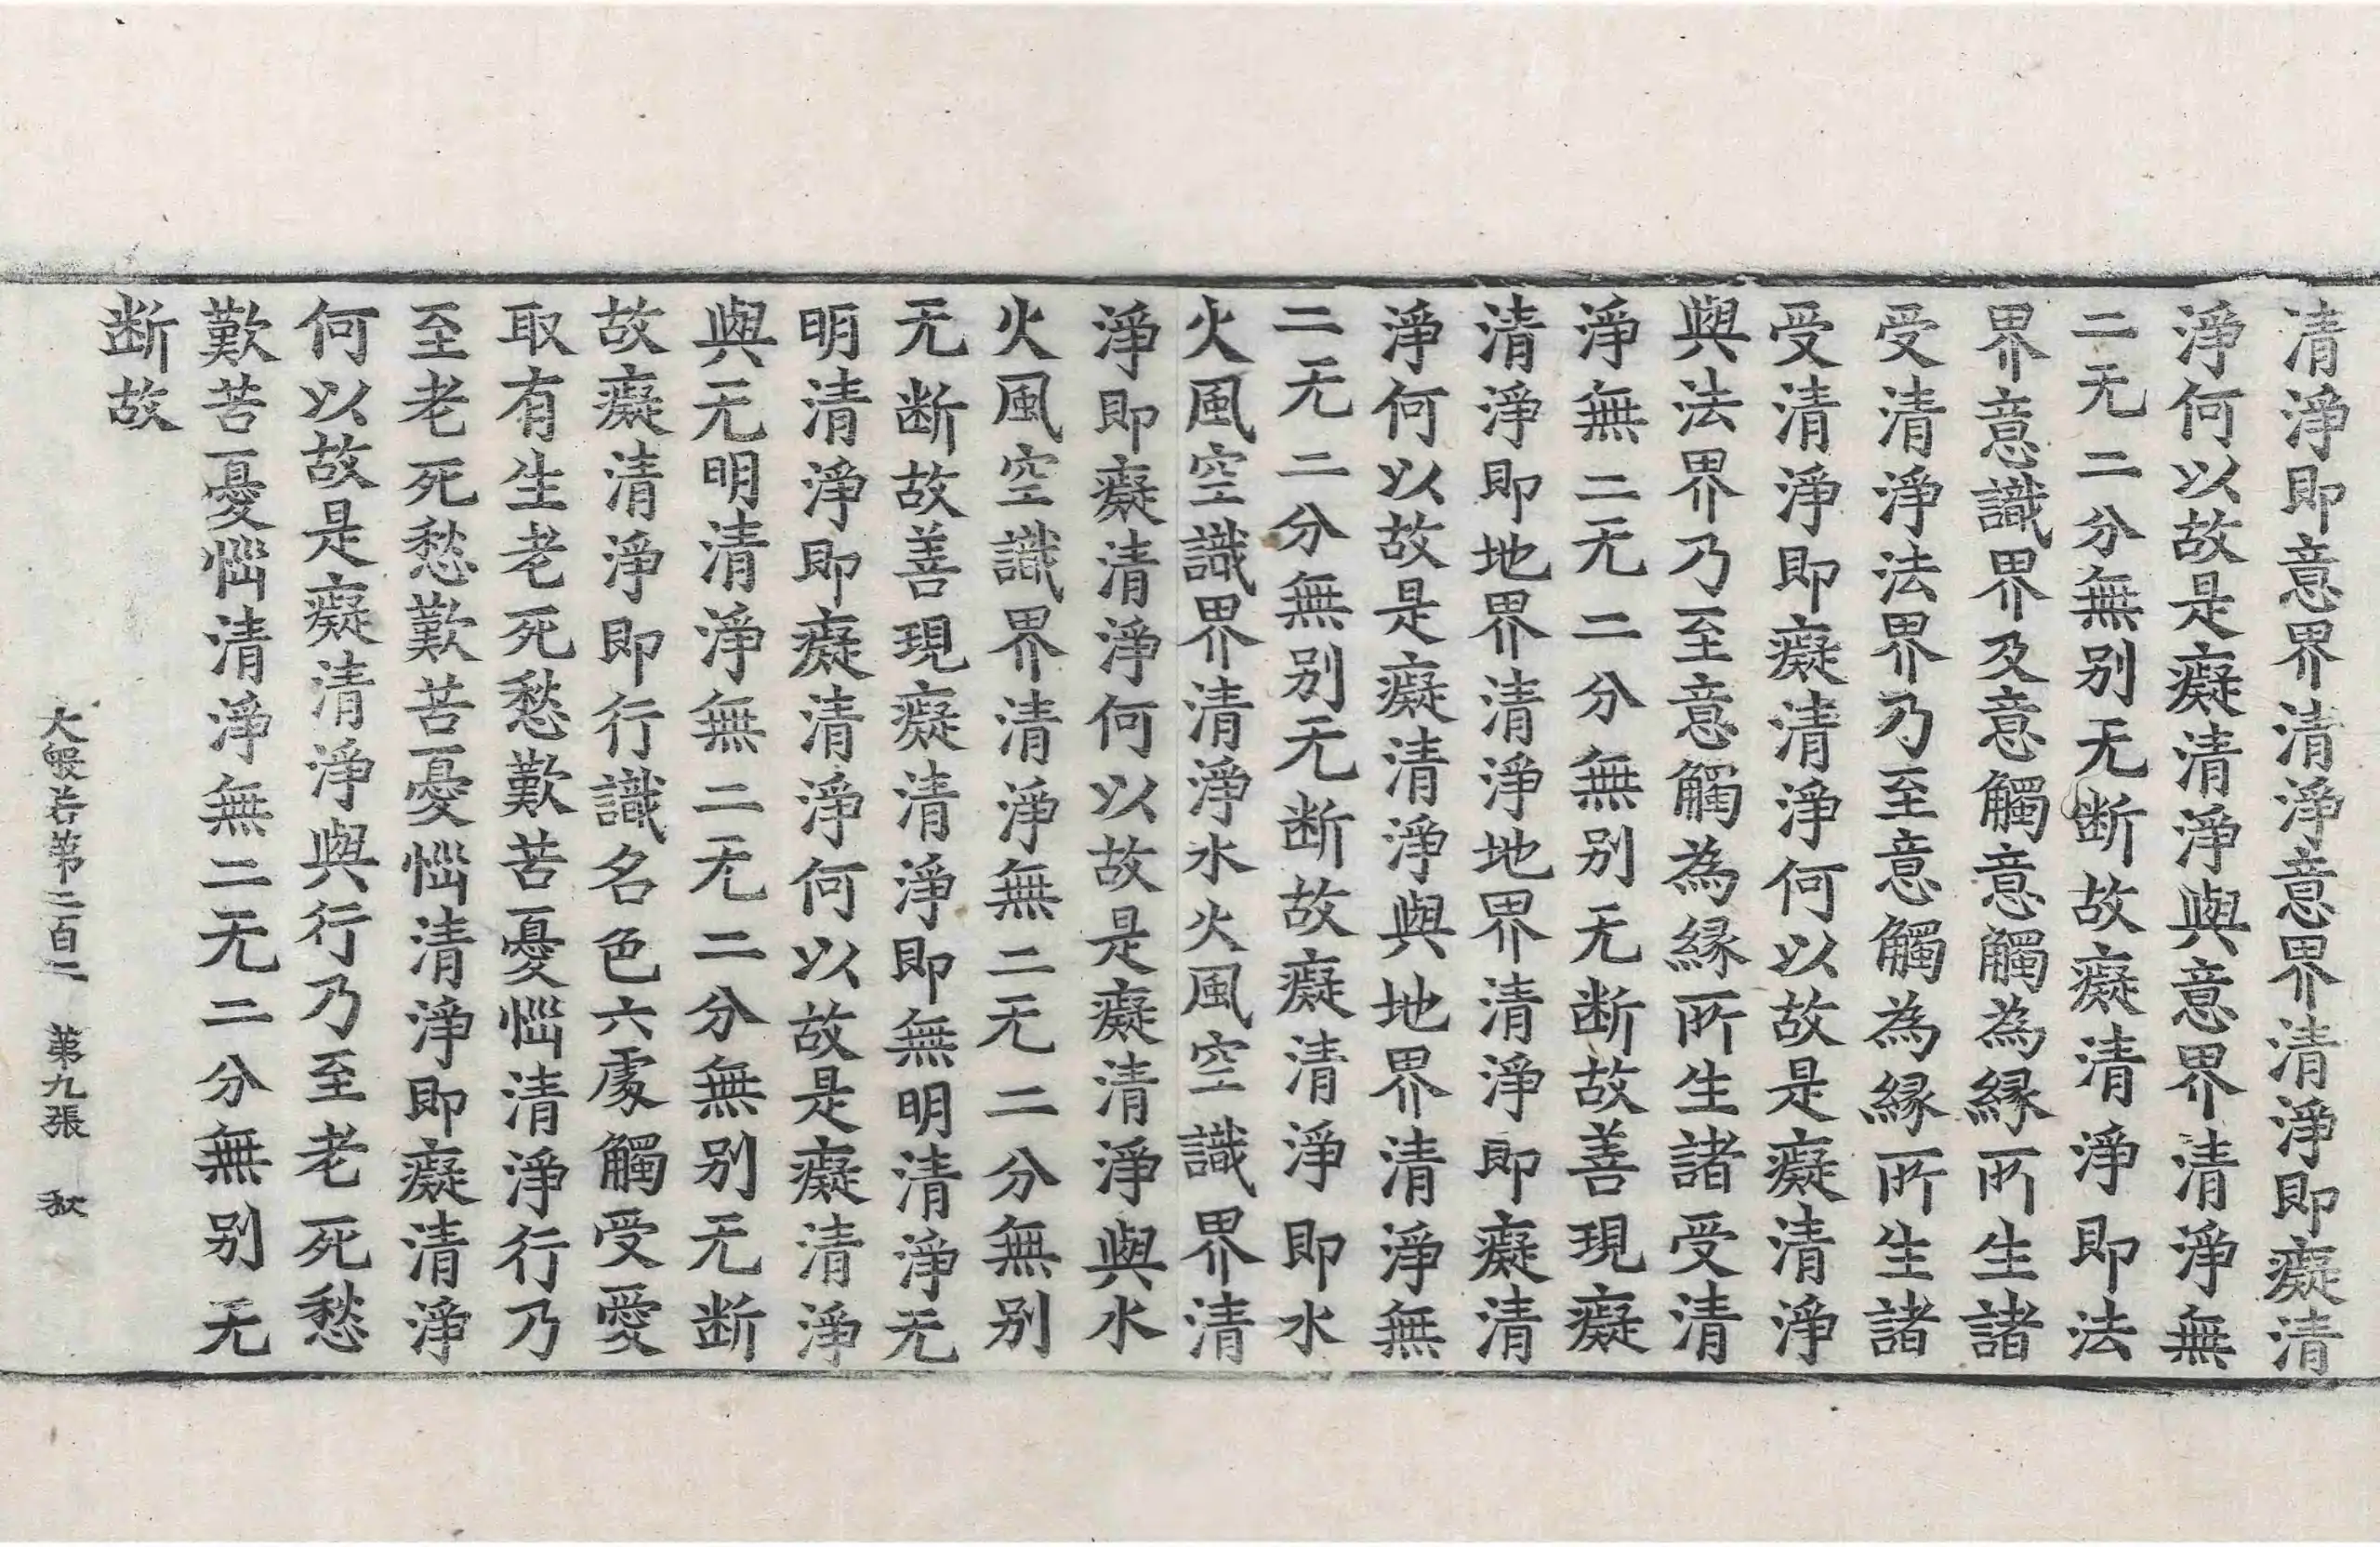 清淨即意界清淨意界清淨即癡清
淨何以故是癡清淨與意界清淨無
二无二分無别无断故癡清淨即法
界意識界及意觸意觸為縁所生諸
受清淨法界乃至意觸為縁所生諸
受清淨即癡清淨何以故是癡清淨
與法界乃至意觸為縁所生諸受清
淨無二无二分無别无断故善現癡
清淨即地界清淨地界清淨即癡清
淨何以故是癡清淨與地界清淨無
二无二分無别无断故癡清淨即水
火風空識界清淨水火風空識界清
淨即癡清淨何以故是癡清淨與水
火風空識界清淨無二无二分無别
无断故善現癡清淨即無明清淨无
明清淨即癡清淨何以故是癡清淨
與无明清淨無二无二分無别无断
故癡清淨即行識名色六處觸受愛
取有生老死愁歎苦憂惱清淨行乃
至老死愁歎苦憂惱清淨即癡清淨
何以故是癡清淨與行乃至老死愁
歎苦憂惱清淨無二无二分無别无
断故
大般若第二百二 第九張